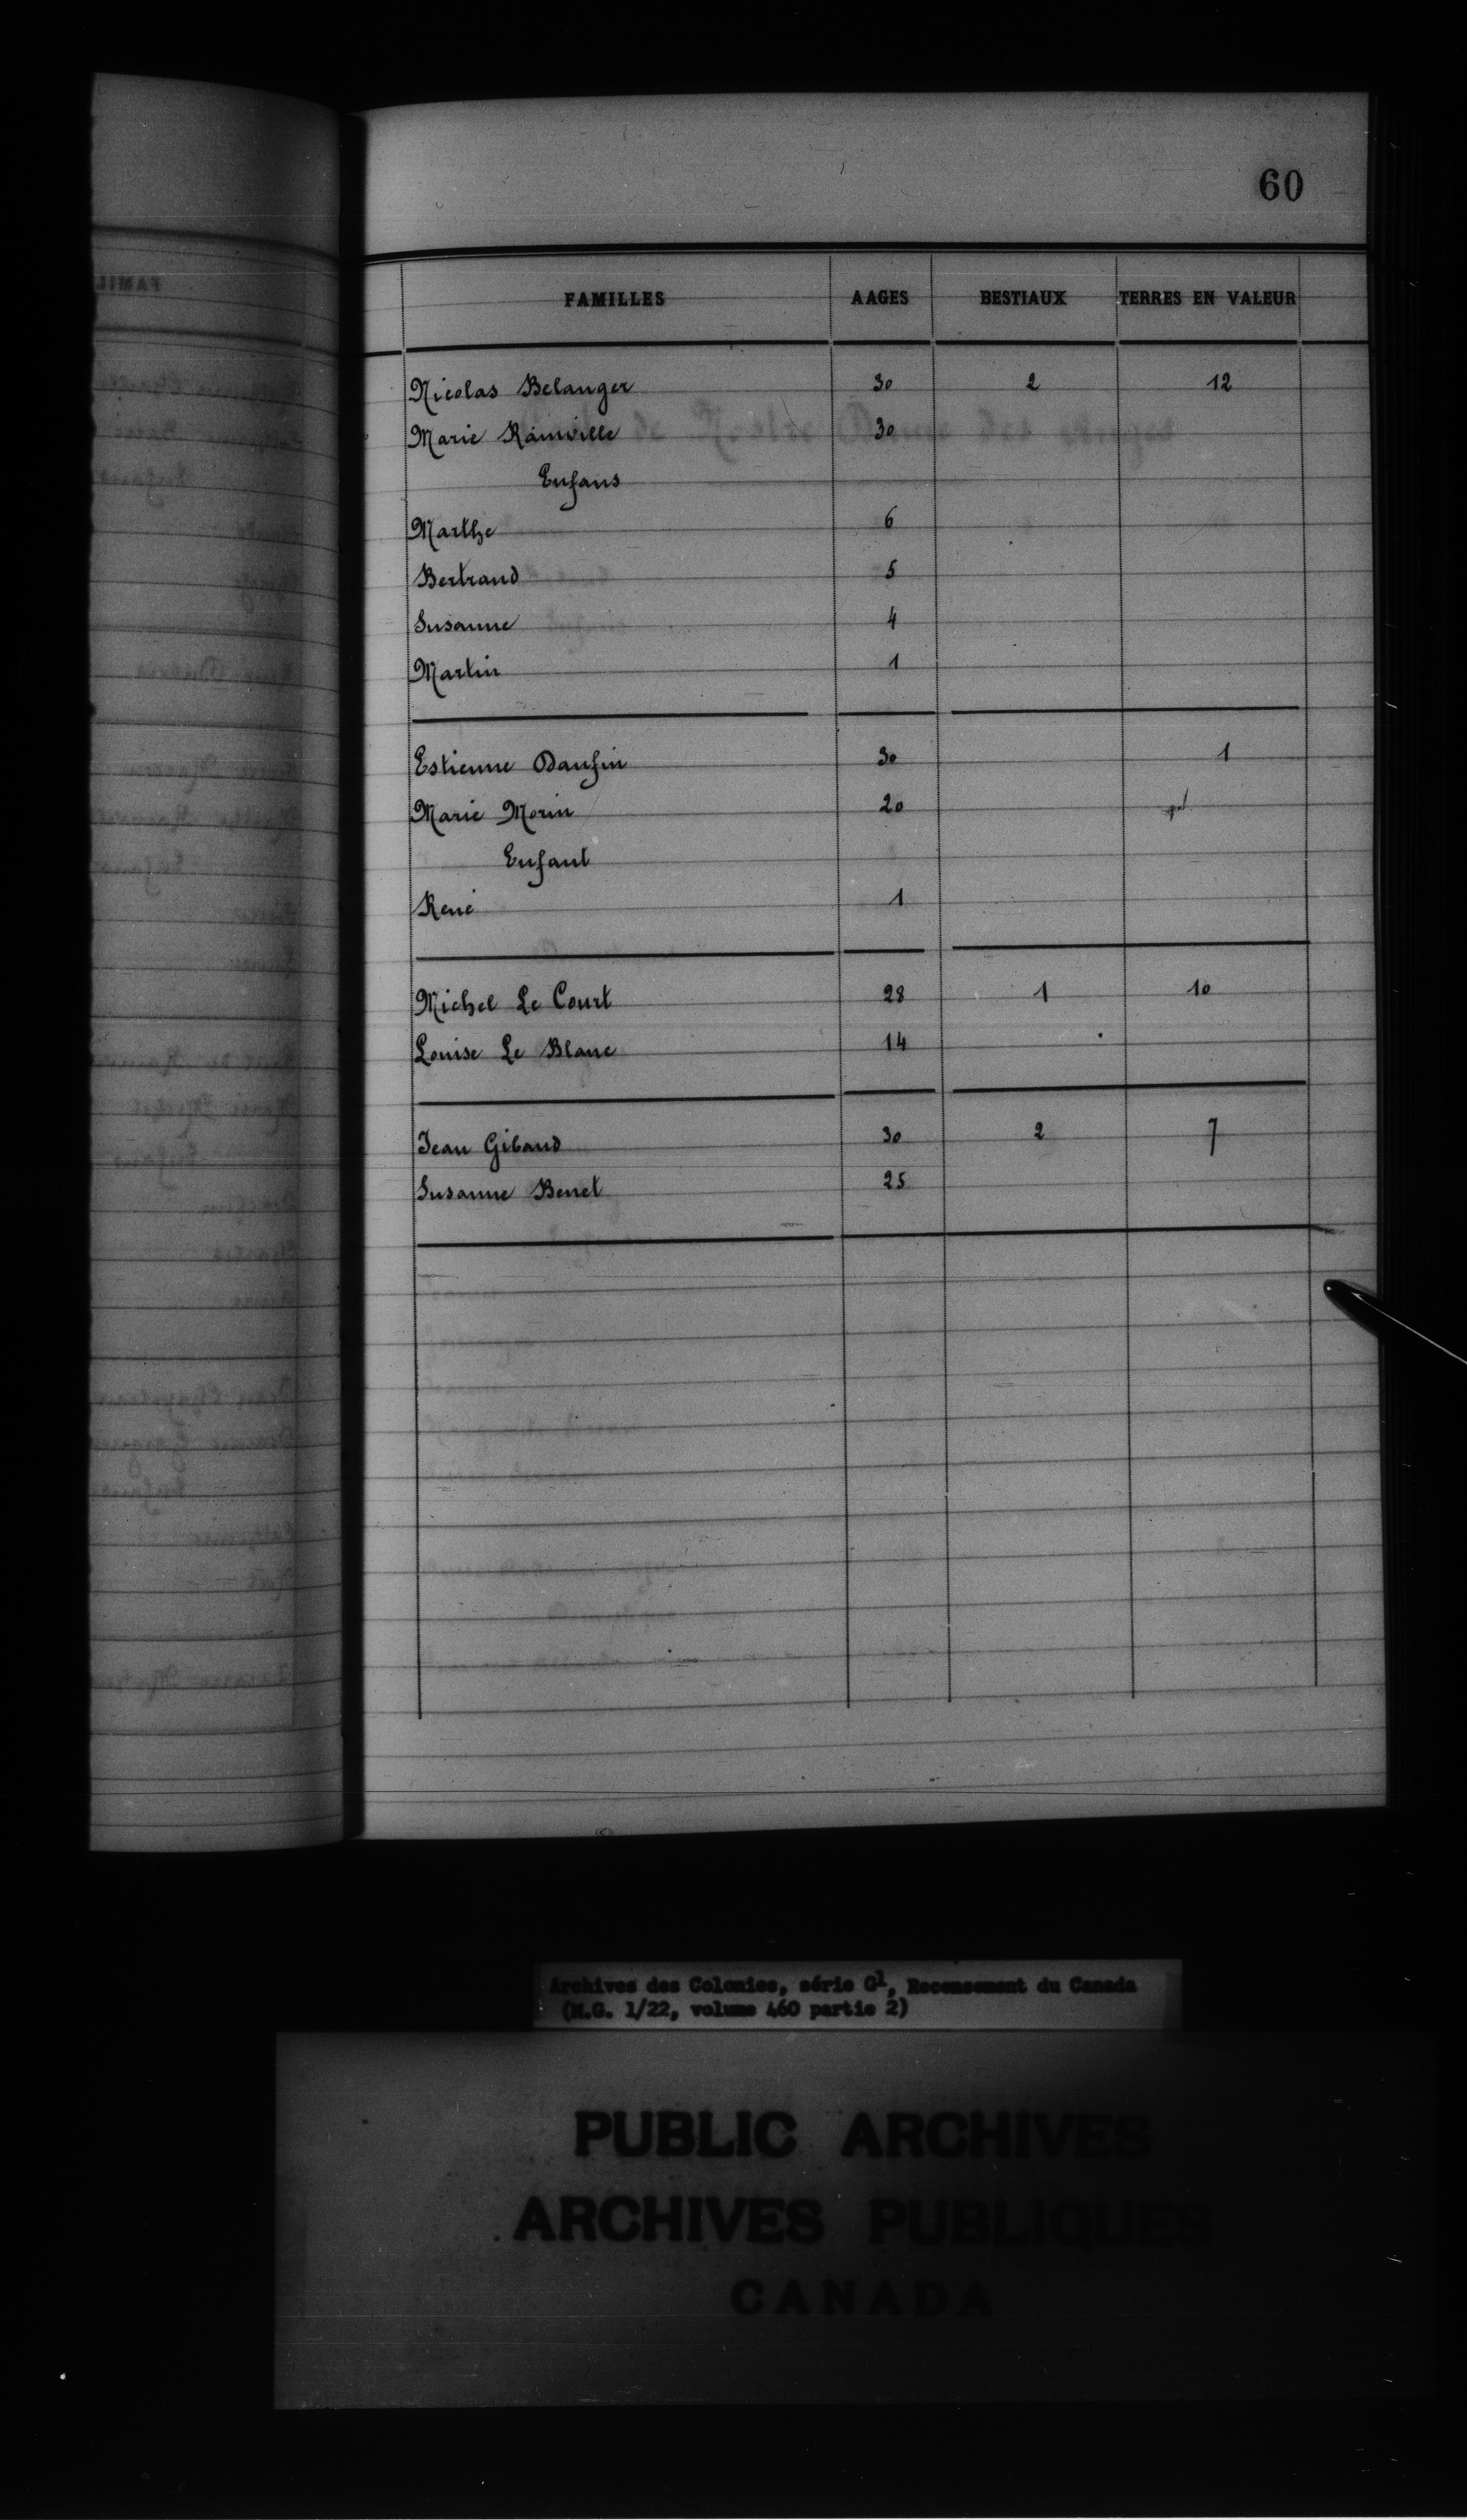 60
FAMILLES AAGES BESTIAUX TERRES EN VALEUR
Nicolas Belanger 30 2 12
Marie Rainville 30
Enfans
Marthe 6
Bertrand 5
Susanne 4
Martin 1
Estienne Daufin 30 1
Marie Morin 20
Enfant
René 1
Michel Le Court 28 1 10
Louise Le Blanc 14
Jean Gibaud 30 2 7
Susanne Benet 25
Archives des Colonies, série G1, Recensement du Canada
(M.G. 1/22, volume 460 partie 2)
PUBLIC ARCHIVES
ARCHIVES PUBLIQUES
CANADA